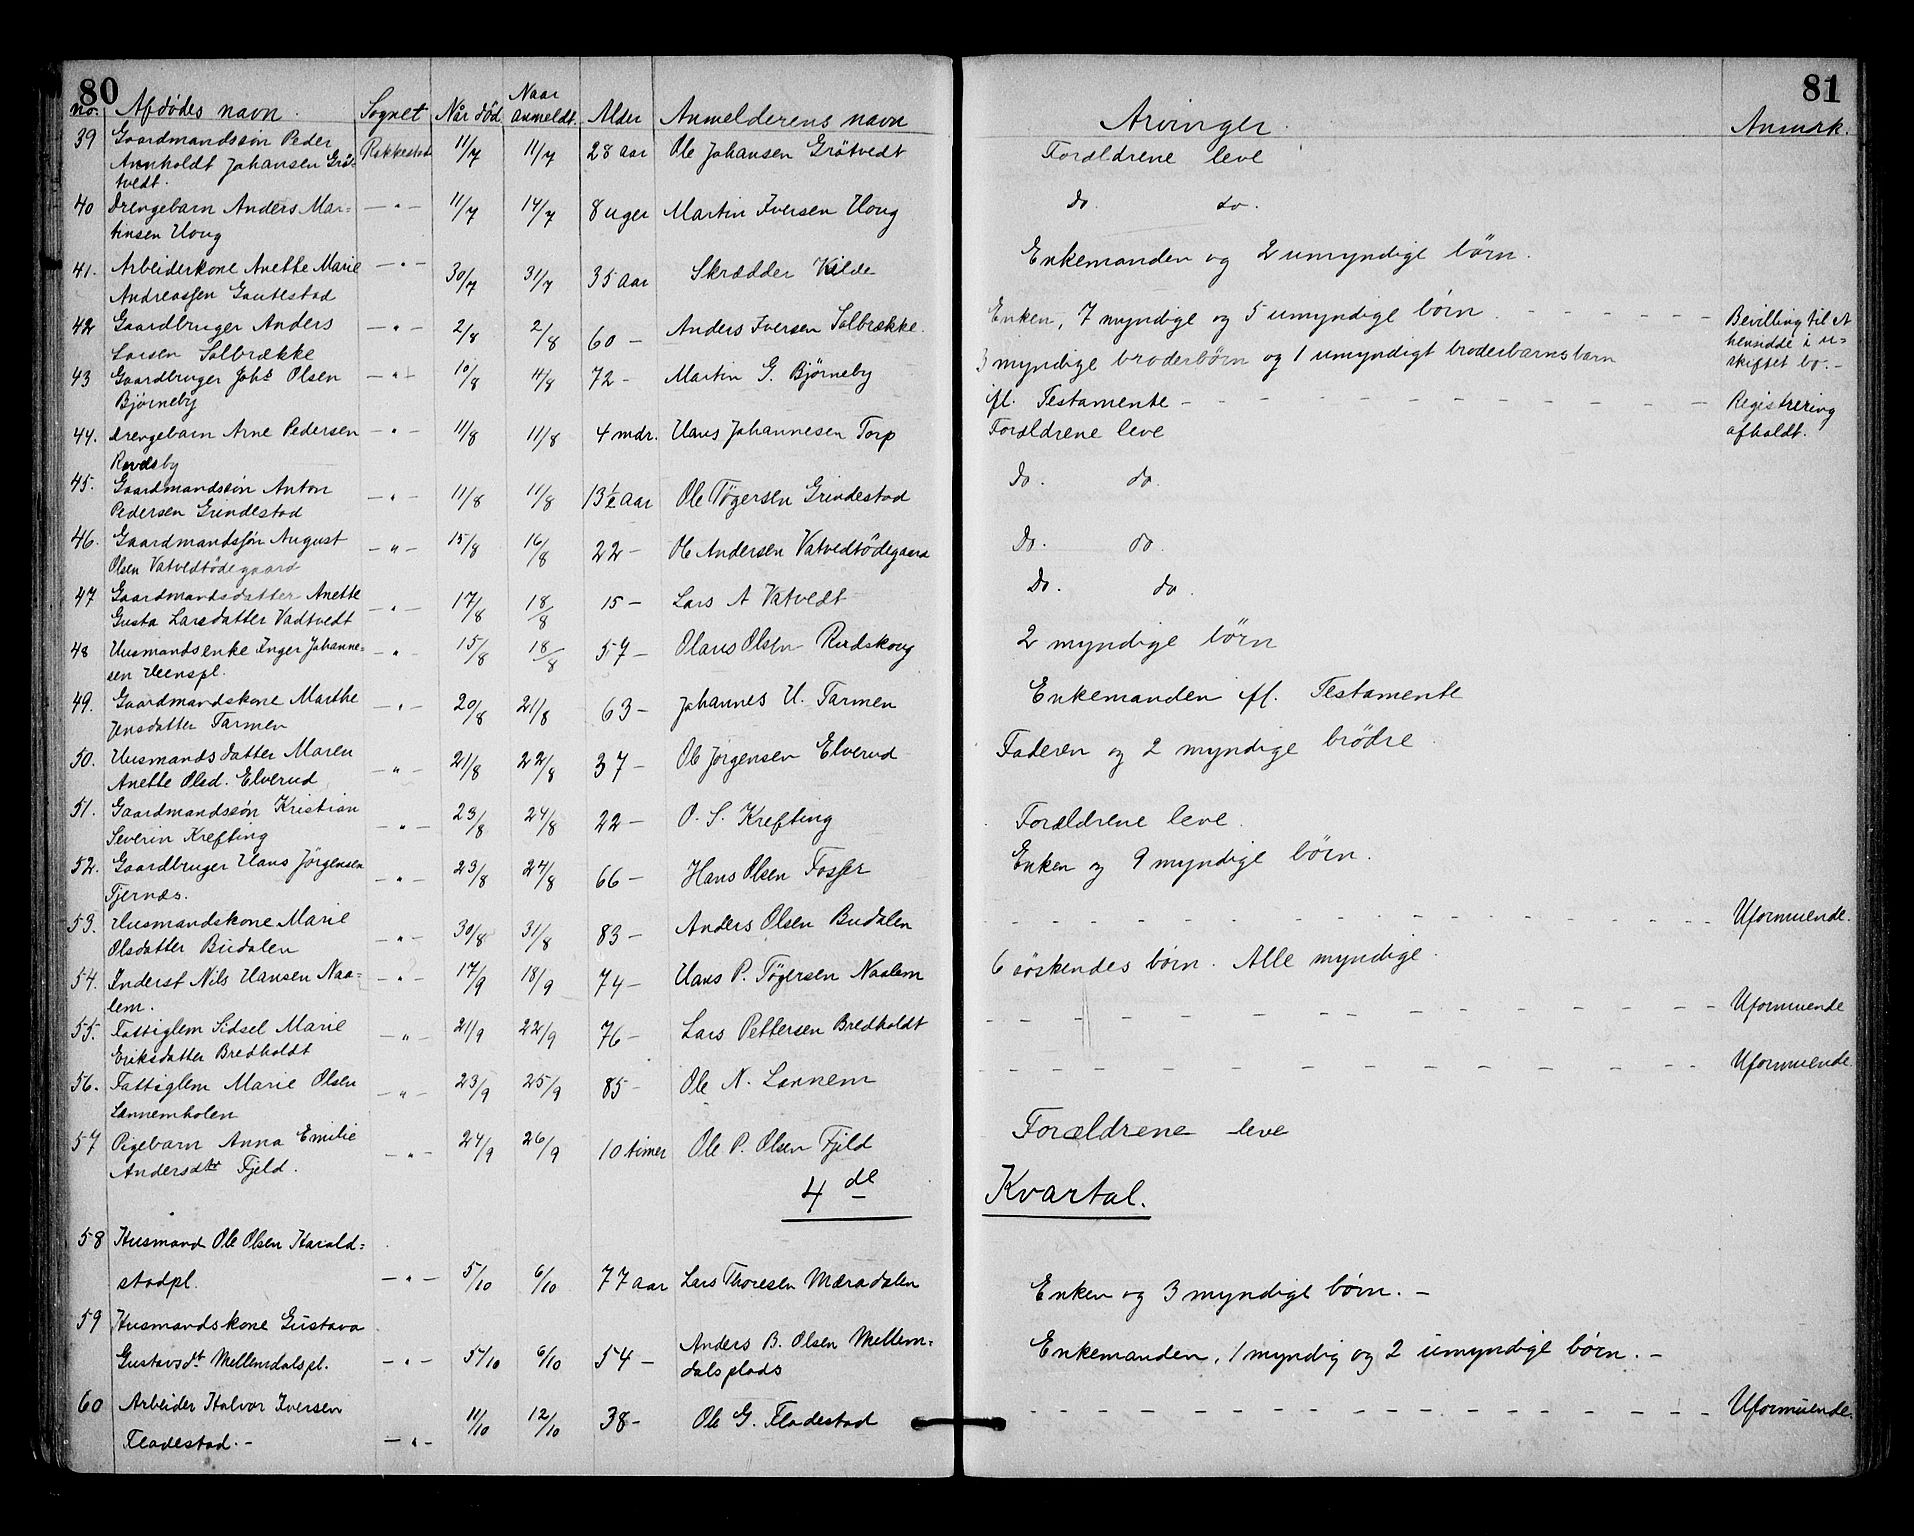 80
81
no. Afdødes navn. Sognet Når død Naar anmeldt. Alder Anmelderens navn Arvinger. Anmerk.
39 Gaardmandssøn Peder Rakkestad 11/7 11/7 28 aar Ole Johansen Grötvedt Forældrene leve
Arnholdt Johansen Gröt-
tvedt.
40 Drengebarn Anders Mar= — " — 11/7 14/7 8 uger Martin Iversen Houg do. do.
tinsen Houg
41. Arbeiderkone Anette Marie — " — 30/7 31/7 35 aar Skrædder Kilde Enkemanden og 2 umyndige börn.
Andreassen Gautestad
42 Gaardbruger Anders — " — 2/8 2/8 60 — Anders Iversen Solbrække. Enken, 7 myndige og 5 umyndige börn — — — — — — Bevilling til at
Larsen Solbrække hensidde i u-
skiftet bo. —
43 Gaardbruger Johs Olsen — " — 10/8 11/8 72 — Martin G. Bjørneby 3 myndige broderbörn og 1 umyndigt broderbarnsbarn
Bjørneby ifl. Testamente — — — — — — — — — Registrering
afholdt.
44. Drengebarn Arne Pedersen — " — 11/8 11/8 4 mdr. Hans Johannesen Torp Forældrene leve
Rudsby
45. Gaardmandssön Anton — " — 11/8 11/8 13½ aar Ole Tøgersen Grindestad do. do.
Pedersen Grindestad
46. Gaardmandssøn August — " — 15/8 16/8 22 — Ole Andersen Vatvedtødegaard do. do.
Olsen Vatvedtødegaard
47 Gaardmandsdatter Anette — " — 17/8 18/8 15 — Lars A Vatvedt do. do.
Gusta Larsdatter Vadtvedt
48 Husmandsenke Inger Johanne= — " — 15/8 18/8 57 — Olaus Olsen Rudskoug 2 myndige börn
sen Heenspl.
49. Gaardmandskone Marthe — " — 20/8 21/8 63 — Johannes H. Tarmen Enkemanden ifl. Testamente
Jensdatter Tarmen
50. Husmandsdatter Maren — " — 21/8 22/8 37 — Ole Jørgensen Elverud Faderen og 2 myndige brödre.
Anette Olsd. Elverud
51. Gaardmandssøn Kristian — " — 23/8 24/8 22 — O. S. Krefting Forældrene leve.
Severin Krefting
52. Gaardbruger Hans Jörgensen — " — 23/8 24/8 66 — Hans Olsen Fosser Enken og 9 myndige börn.
Tjernæs.
53. Husmandskone Marie — " — 30/8 31/8 83 — Anders Olsen Budalen — — — — — — — — — — Uformuende.
Olsdatter Budalen
54. Inderst Nils Hansen Naa= — " — 17/9 18/9 74 — Hans P. Tøgersen Naalem 6 söskendes börn. Alle myndige.
lem.
55. Fattiglem Sidsel Marie — " — 21/9 22/9 76 — Lars Pettersen Bredholdt — — — — — — — — — — Uformuende
Eriksdatter Bredholdt
56. Fattiglem Marie Olsen — " — 23/9 25/9 85 — Ole N. Lannem — — — — — — — — — — Uformuende.
Lannemholen
57 Pigebarn Anna Emilie — " — 24/9 26/9 10 timer Ole P. Olsen Fjeld Forældrene leve
Andersdtr Fjeld.
4de Kvartal.
58 Husmand Ole Olsen Harald=
stadpl. — " — 5/10 6/10 77 aar Lars Thoresen Mæradalen Enken og 3 myndige börn. —
59 Husmandskone Gustava
Gustavsdt Mellemdalspl. — " — 5/10 6/10 54 — Anders B. Olsen Mellem= Enkemanden, 1 myndig og 2 umyndige börn. —
dalsplads
60 Arbeider Halvor Iversen 11/10 12/10 38 — Ole G. Fladestad — — — — — — — — — — Uformuende.
Fladestad. — — " —